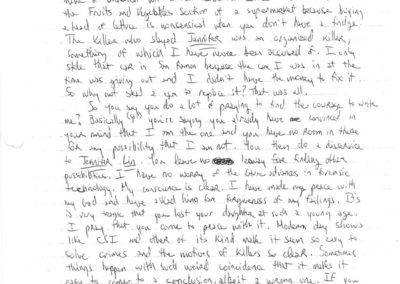 the Fruits and Vegetables section of a supermarket because buying
a head of lettuce is nonsensical when you don't have a fridge.
The killer who slayed Jennifer was an organized killer,
something of which I have never been accused of. I only
stole that car in San Ramon because the car I was in at the
time was giving out and I didn't have the money to fix it.
So why not steal a car to replace it? That was all.
So you say you do a lot of praying to find the courage to write
me? Basically you're saying you already have convinced in
your mind that I am the one and you have no room in there
for any possibility that I am not. You then do a disservice
to Jennifer Lin. You leave no leeway for finding other
possibilities. I have no worry of the advances in forensic
technology. My conscience is clear. I have made my peace with
my God and have asked him for forgiveness of my failings. It's
very tough that you lost your daughter at such a young age.
I pray that you come to peace with it. Modern day shows
like CSI and other of its kind make it seem so easy to
solve crimes and the motives of killers so clear. Sometimes
things happen with such weird coincidence that it makes it
easy to come to a conclusion, albeit a wrong one. If you